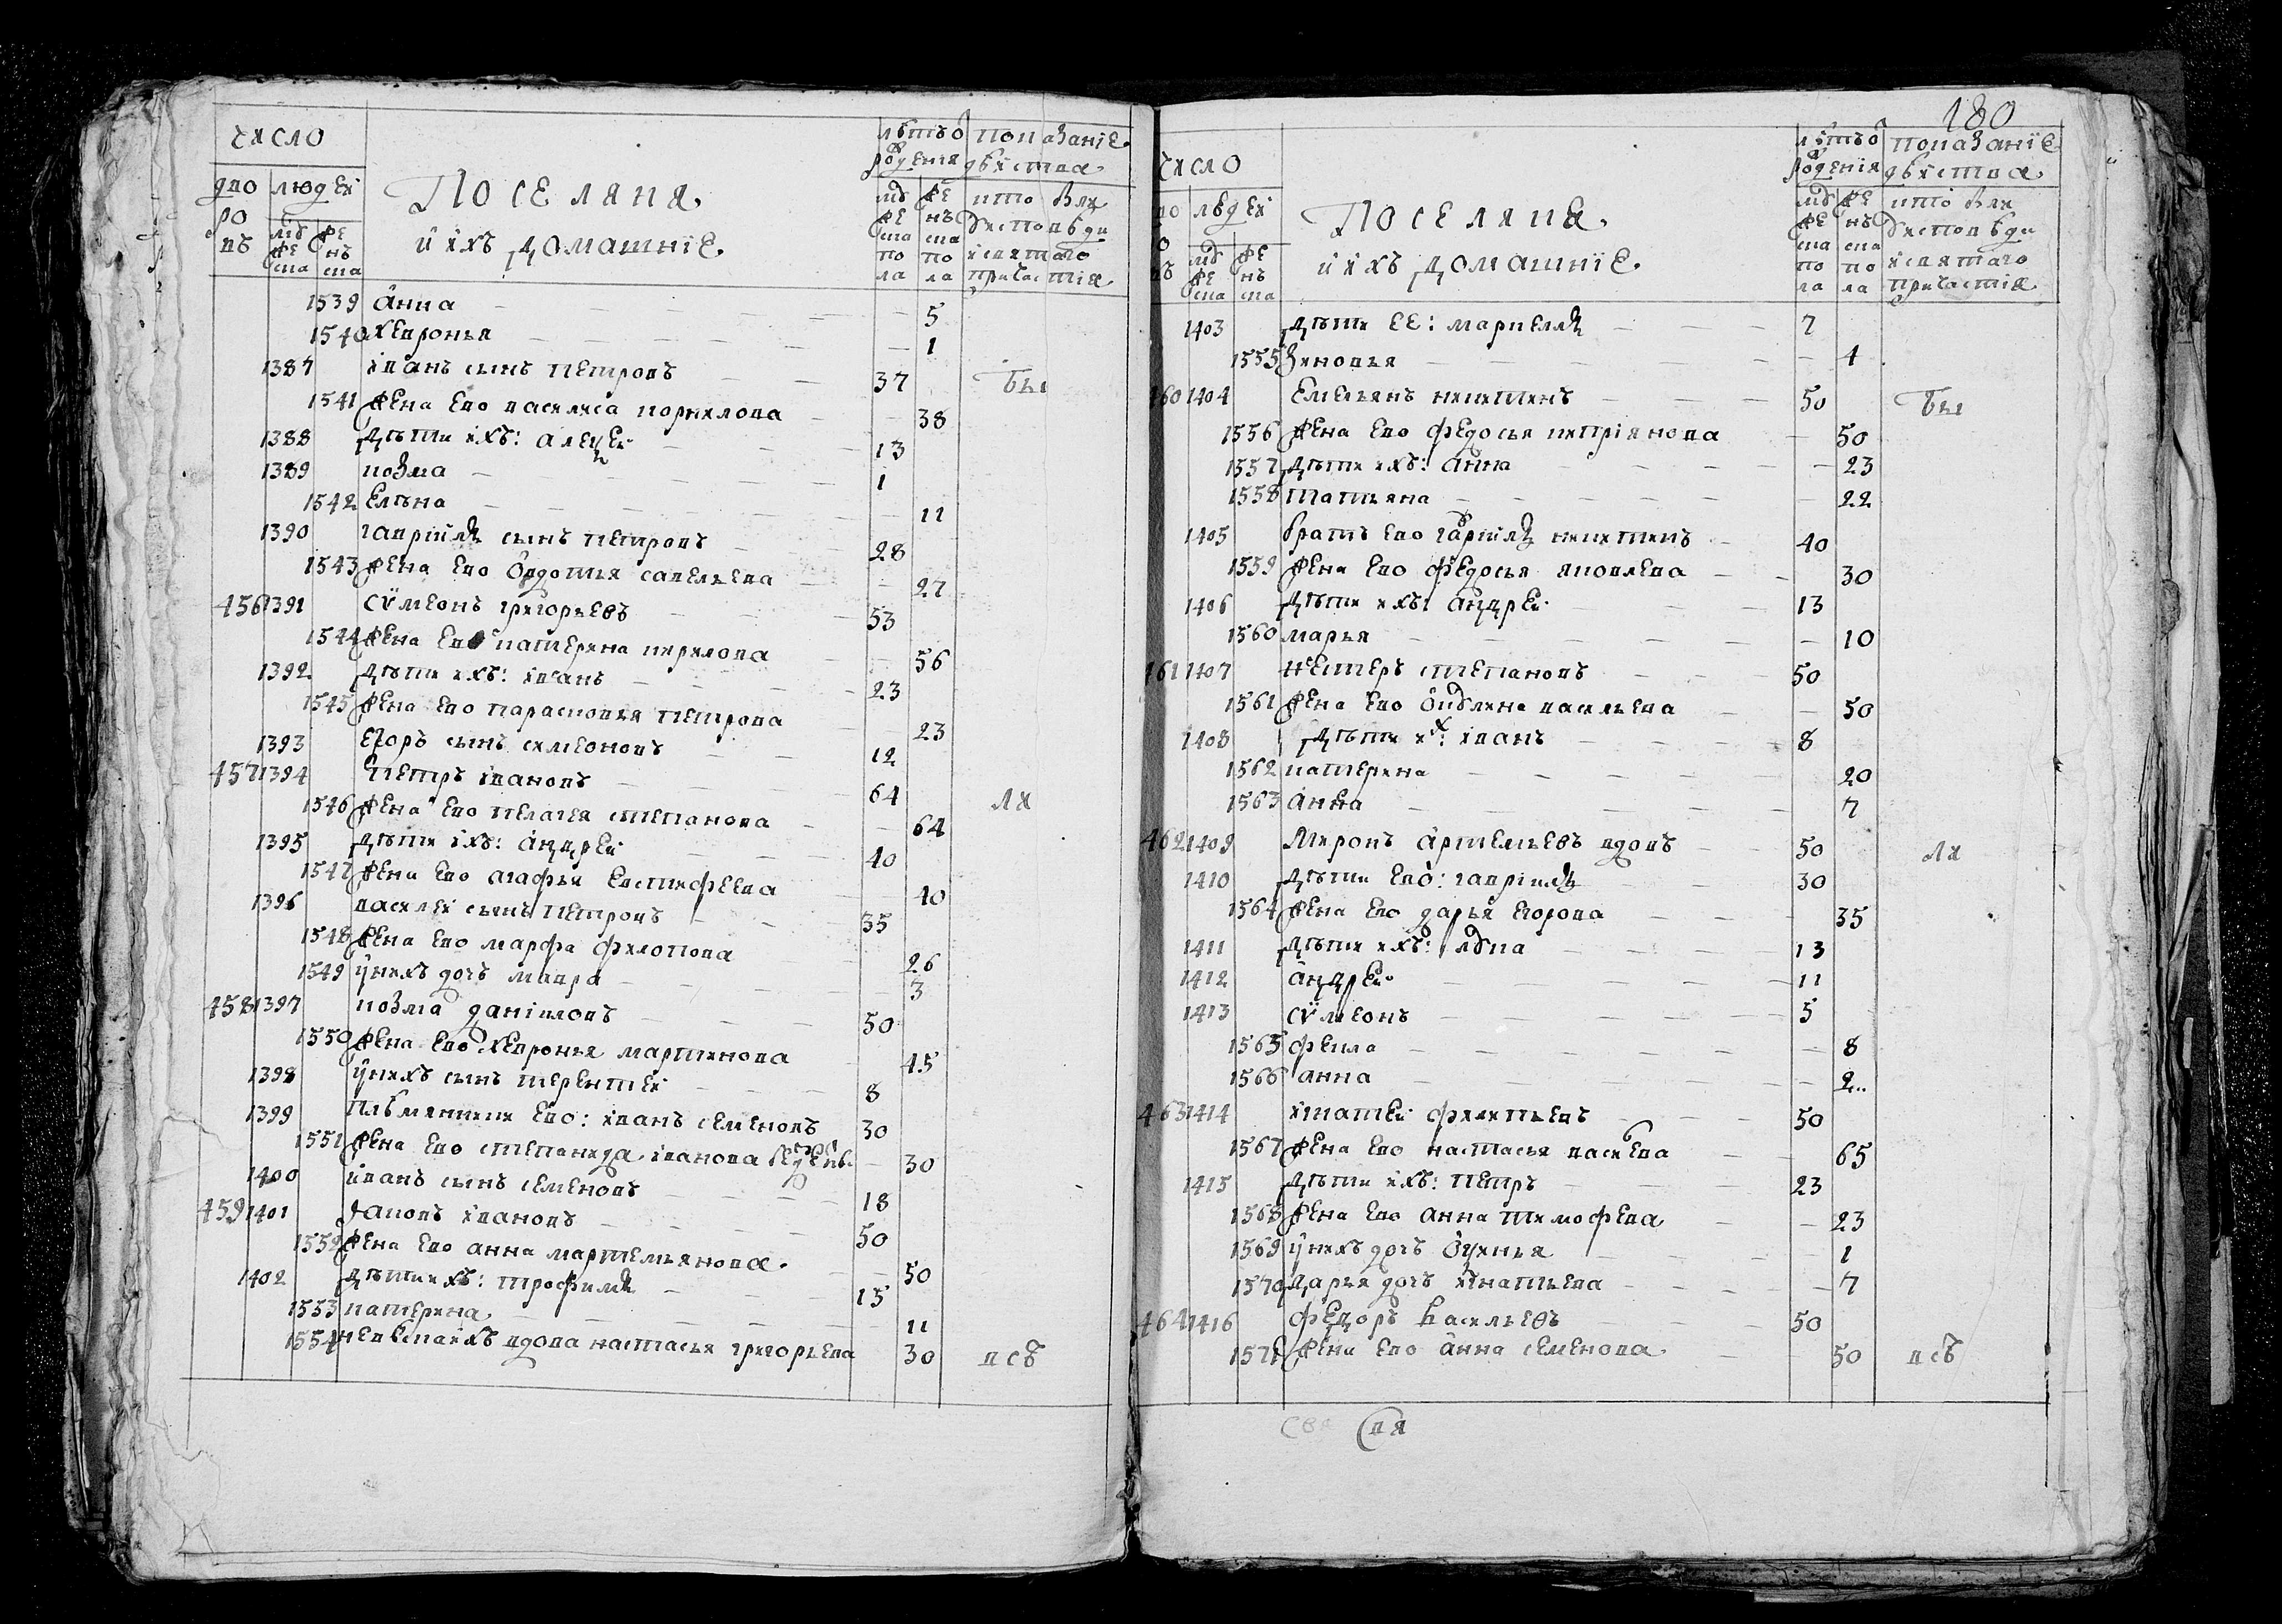 число
дво ро въ
людей
муже ска
женъ ска
Поселяня
и ихъ домашние
лѣтъ о рождения
муже ска по ла
женъ ска по ла
показание действа
кто были у исповѣди и святаго причастия
1539 анна 5
1540 хевронья 1
1387 иванъ сынъ петровъ 37 бы
1541 жена ево василиса корнилова 38
1388 дѣти ихъ: алеѯей 13
1389 козма 1
1542 елѣна 11
1390 гавриилъ сынъ петровъ 28
1543 жена ево овдотья савельева 27
456 1391 сѵмеонъ григорьевъ 53
1544 жена ево катерина кирилова 56
1392 дѣти ихъ: иванъ 23
1545 жена ево парасковья петрова 23
1393 егоръ сынъ симеоновъ 12
457 1394 петръ ивановъ 64 ли
1546 жена ево пелагея степанова 64
1395 дѣти ихъ: андрей 40
1547 жена ево агафья евстифеева 40
1396 василей сынъ петровъ 35
1548 жена ево марфа филопова 26
1549 у нихъ дочь мавра 3
458 1397 козма даниловъ 50
1550 жена ево хевронья мартинова 45
1398 у нихъ сынъ терентей 8
1399 племянники ево: иванъ семеновъ 30
1551 жена ево степанида иванова 30
1400 иванъ сынъ семеновъ 18
459 1401 ꙗковъ ивановъ 50
1552 жена ево анна мартемьянова 50
1402 дѣти ихъ: трофимъ 15
1553 катерина 11
1554 невѣстка ихъ вдова настасья григорьева 30 всѣ
180
число
во ро въ
людей
муже ска
женъ ска
Поселяне
и ихъ домашние
лѣтъ о рождения
муже ска по ла
женъ ска по ла
показание действа
кто были у исповѣди и святаго причастия
1403 дѣти ее: маркеллъ 7
1555 зиновья 4
460 1404 емельянъ никитинъ 50 бы
1556 жена ево федосья киприянова 50
1557 дѣти ихъ: анна 23
1558 татьяна 22
1405 братъ ево гавриилъ никитинъ 40
1559 жена ево федосья яковлева 30
1406 дѣти ихъ: андрей 13
1560 марья 10
461 1407 нестеръ степановъ 50
1561 жена ево окулина васильева 50
1408 дѣти их: иванъ 8
1562 катерина 20
1563 анна 7
462 1409 Миронъ артемьевъ вдовъ 50 ли
1410 дѣти ево: гавриилъ 30
1564 жена ево дарья егорова 35
1411 дѣти ихъ: лука 13
1412 андрей 11
1413 сѵмеонъ 5
1565 фекла 8
1566 анна 2
463 1414 игнатей филипьевъ 50
1567 жена ево настасья васильева 65
1415 дѣти ихъ: петръ 23
1568 жена ево анна тимофева 23
1569 у нихъ дочь оѯинья 1
1570 дарья дочь игнатьева 7
464 1416 федоръ васильевъ 50
1571 жена ево анна семенова 50 всѣ
свя (вя